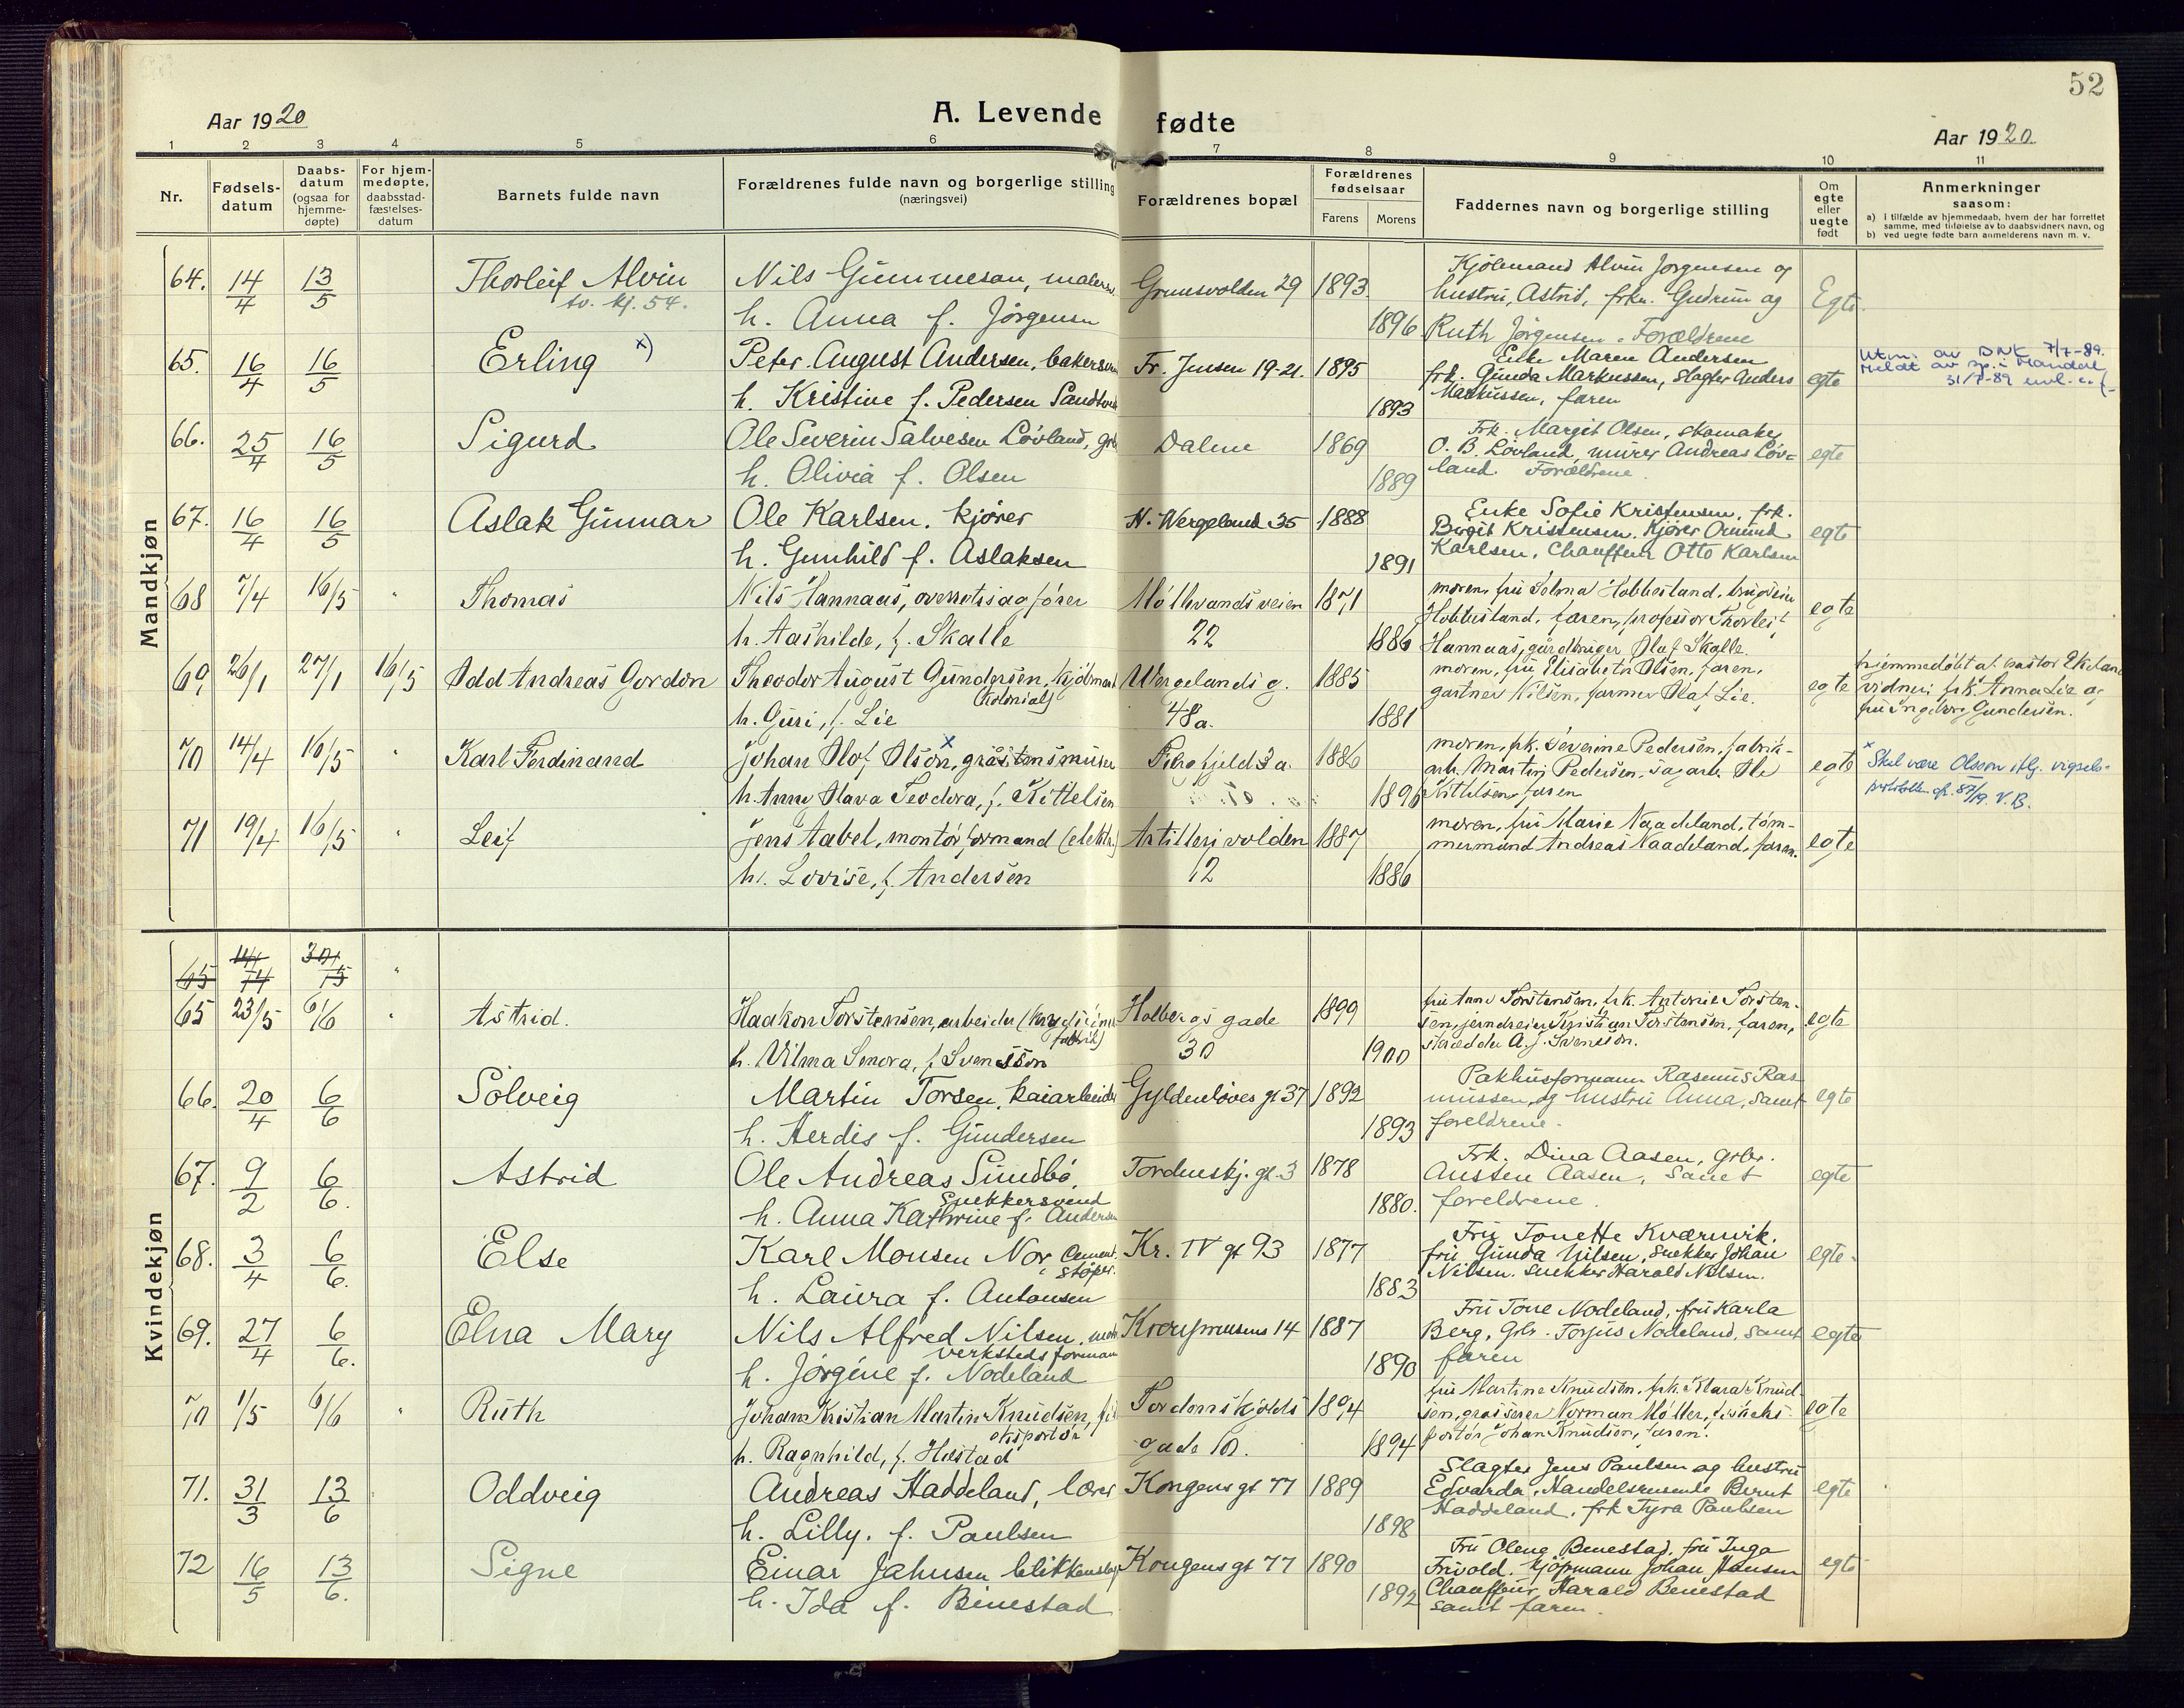 52
Aar 1920
A. Levende fødte
Aar 1920.
1 2 3 4 5 6 7 8 9 10 11
Nr.
Fødsels-
datum
Daabs-
datum
(ogsaa for
hjemme-
døpte)
For hjem-
medøpte,
daabsstad-
fæstelses-
datum
Barnets fulde navn
Forældrenes fulde navn og borgerlige stilling
(næringsvei)
Forældrenes bopæl
Forældrenes
fødselsaar
Farens Morens
Faddernes navn og borgerlige stilling
Om
egte
eller
uegte
født
Anmerkninger
saasom:
a) i tilfælde av hjemmedaab, hvem der har forrettet
samme, med tilføielse av to daabsvidners navn, og
b) ved uegte fødte barn anmelderens navn m. v.
Mandkjøn
64. 14/4 13/5 Thorleif Alvin Nils Gummesan, Grønsvolden 29 1893 Kjøbmand Alvin Jørgensen og Egte
h. Anna f. Jørgensen 1896 hustru, Astrid, frkn. Gudrun og
Ruth Jørgensen. Forældrene
65. 16/4 16/5 Erling x) Peter August Andersen, bakersvend Fr. Jensen 19-21. 1895 Enke Maren Andersen egte
h. Kristine f. Pedersen 1893 frk. Gunda Markussen, slagter Anders
Markussen, faren
31/7-89
66. 25/4 16/5 Sigurd Ole Severin Salvesen Løvland, Dalene 1869 Frk. Margit Olsen, skomaker egte
h. Olivia f. Olsen 1889 O. B. Løvland, murer Andreas Løv=
land. Forældrene
67. 16/4 16/5 Aslak Gunnar Ole Karlsen. kjører H. Wergeland 35 1888 Enke Sofie Kristensen, frk. egte
h. Gunhild f. Aslaksen 1891 Birgit Kristensen. Kjører Omund
Karlsen, Chauffeur Otto Karlsen
68 7/4 16/5 " Thomas Nils Hannaas, overretssagfører Møllevandsveien 1871 moren, fru Selma Hobbesland, egte
h. Aashilde, f. Skalle 22 1886 Hobbesland, faren, professor Thorleif
Hannaas, gårdbruger Olaf Skalle.
69. 26/1 27/1 16/5 Odd Andreas Gordon Theodor August Gundersen, kjøbmand Wergelands g. 1885 moren, fru Elisabeth Olsen, faren, egte hjemmedøbt af pastor
(kolonial)
h. Guri, f. Lie 48a. 1881 gartner Nilsen, farmer Olaf Lie. vidner: frk. Anna Lie og
fru Ingeborg Gundersen.
70 14/4 16/5 " Karl Ferdinand Johan Olof Olson x, gråstensmurer 3 a. 1886 moren, frk. Severine Pedersen, fabrik- egte x Skal være Olsson iflg. vigsels-
h. Anny Olava Teodora, f. Kittelsen 1896 arb. Martin Pedersen, sagarb. Ole V.B.
Kittelsen, faren
71 19/4 16/5 " Leif Jens Aabel, montørformand (elektr.) Artillerivolden 1887 moren, fru Marie Naadeland, tøm- egte
h. Lovise, f. Andersen 12 1886 mermand Andreas Naadeland, faren.
Kvindekjøn
65 "
65 23/5 6/6 " Astrid. Haakon Torstensen, arbeider Holbergs gade 1899 fru Anne Torstensen, frk. Antonie Torsten- egte
fabrik)
h. Vilma Senora, f. Svensson 30 1900 sen, jerndreier Kristian Torstensen, faren,
skrædder A. J. Svensson.
66. 20/4 6/6 Solveig Martin Torsen, kaiarbeider Gyldenløves gt 37 1892 Pakhusformann Rasmus Ras- egte
h. Herdis f. Gundersen 1893 mussen, og hustru Anna, samt
foreldrene.
67. 9/2 6/6. Astrid Ole Andreas Sundbø, Tordenskj. gt. 3 1878 Frk. Dina Aasen, grbr. egte
Snekkersvend
h. Anna Kathrine f. Andersen 1880. Austen Aasen, Samt
foreldrene.
68. 3/4 6/6. Else Karl Monsen Nor, Cement- Kr. IV gt 93 1877 Fru Tonette Kværnvik. egte
støper.
h. Laura f. Antonsen 1883 fru Gunda Nilsen, Snekker Johan
Nilsen. snekker Harald Nilsen.
69. 27/4 6/6. Elna Mary Nils Alfred Nilsen, 14 1887 Fru Tone Nodeland, fru Karla egte
verkstedsformann
h. Jørgine f. Nodeland 1890 Berg, Grbr. Torjus Nodeland, samt
faren
70 1/5 6/6 " Ruth Johan Kristian Martin Knudsen, Tordenskjolds 1894 fru Martine Knudsen, frk. Klara Knud- egte
eksportør
h. Ragnhild, f. Hæstad gade 1894 sen, grosserer Norman Møller, fiskeeks-
portør Johan Knudsen, faren.
71. 31/3 13/6 Oddveig Andreas Haddeland, lærer Kongensgt 77 1889 Slagter Jens Paulsen og hustru egte
h. Lilly. f. Paulsen 1898 Edvarda, Handelsreisende Bernt
Haddeland, frk Tyra Paulsen
72 16/5 13/6. Signe Einar Jahnsen blikkenslager Kongensgt 77 1890 Fru Oleng Benestad, fru Inga egte
h. Ida f. Benestad 1892 Frivold. Kjøpmann Johan Hansen
Chauffeur Harald Benestad
samt faren.